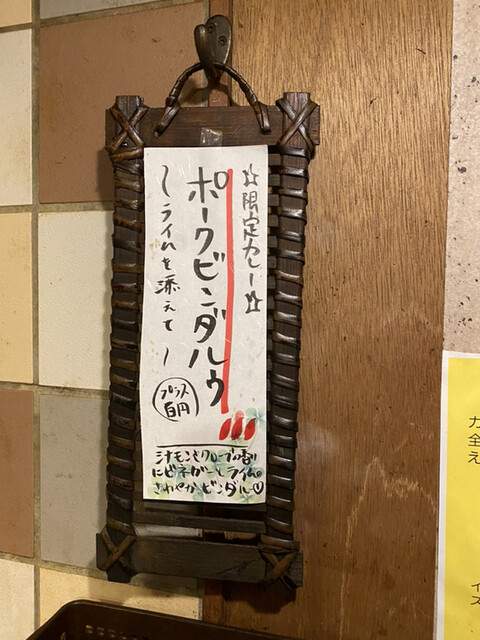 ☆限定カレー☆
ポークビンダルゥ
〜ライムを添えて〜
プラス
百円
シナモンとクローブの香り
にビネガーとライムの
さわやかビンダルー♡
カ
全
え
イ
ス